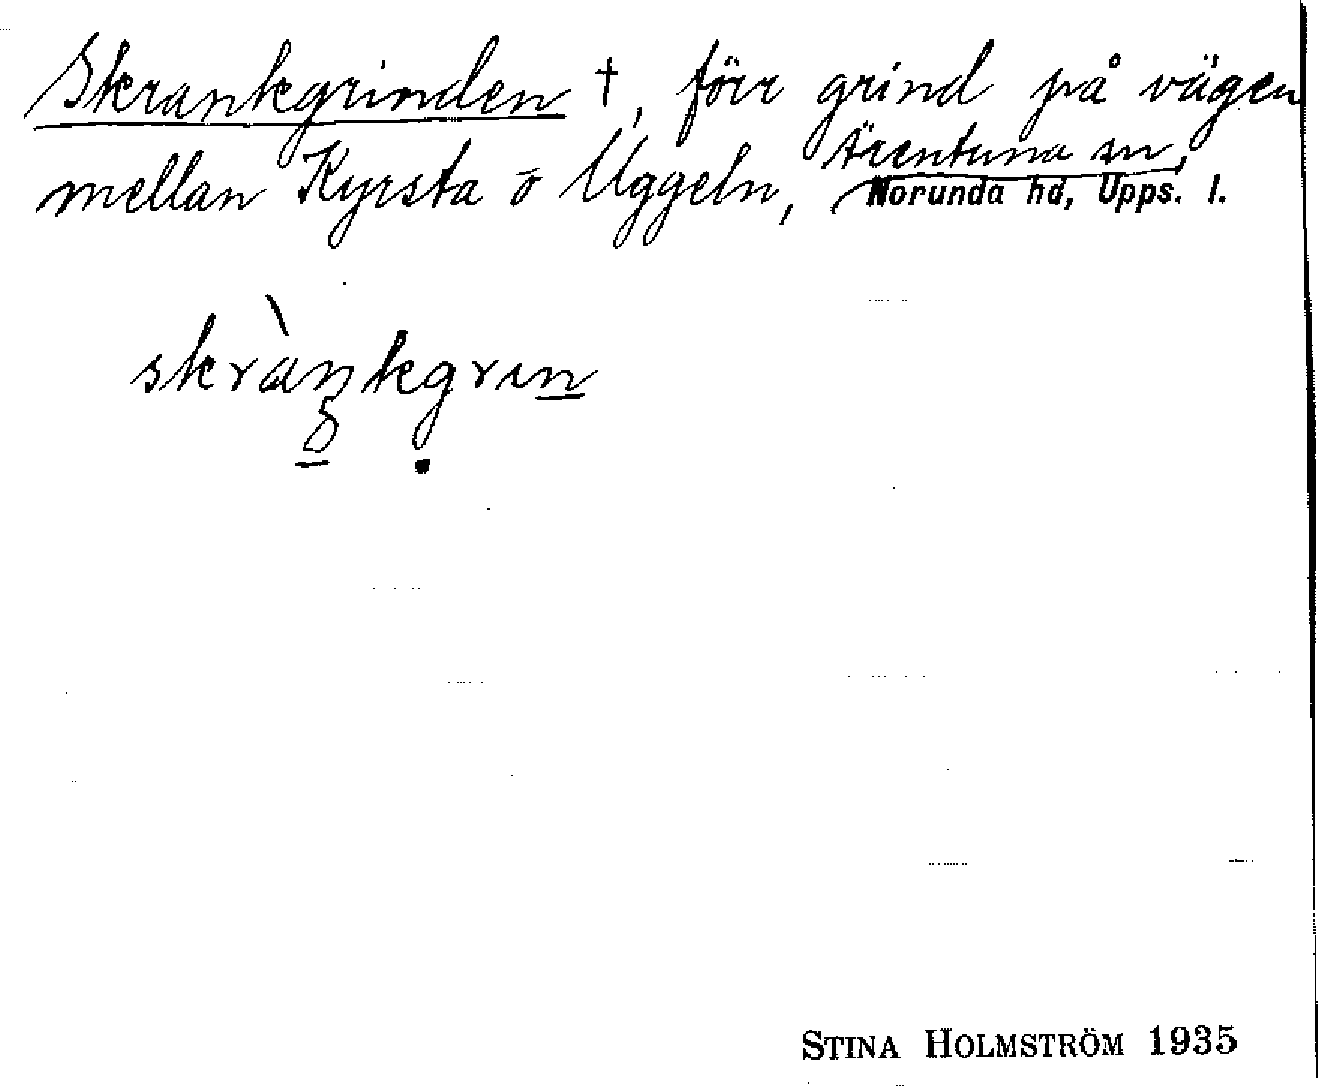 Skrankgrinden †, förr grind på vägen
mellan Kyrsta o Uggeln, Ärentuna sn,
Norunda hd, Upps. l.
skràŋkgrın
STINA HOLMSTRÖM 1935